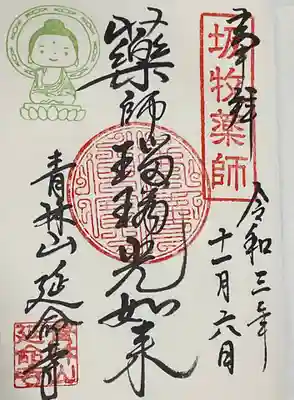 奉拝
坂牧薬師
令和三年
十一月六日
藥師瑠璃光如来
青林山延命寺